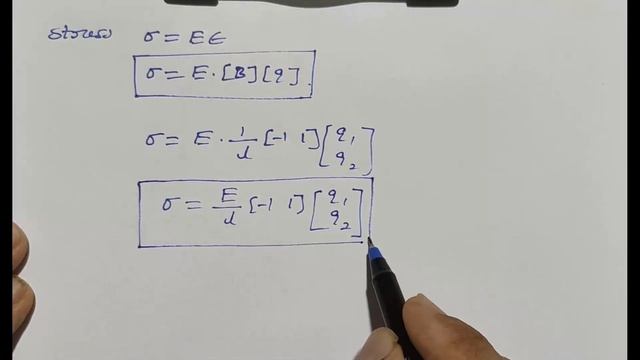 stress σ = Eϵ
σ = E · [B] [q] .
σ = E · 1/l [-1 1] [q₁ q₂]
σ = E/l [-1 1] [q₁ q₂]